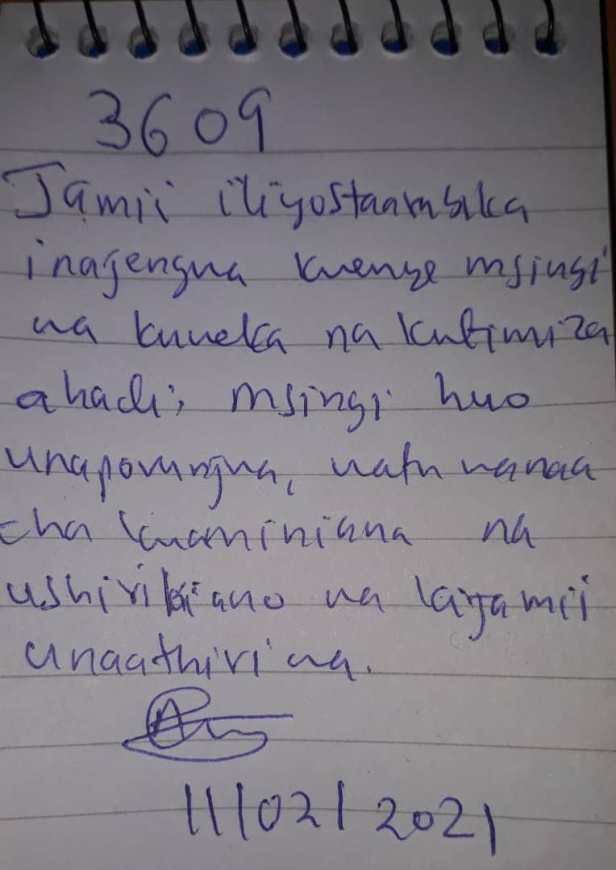 3609
Jamii iliyostaarabika
inajengwa kwenye msingi
wa kuweka na kutimiza
ahadi; msingi huo
unapovungwa, watu wanaa
cha kuaminiana na
ushirikiano wa kijamii
unaathiriwa.
11/02/2021